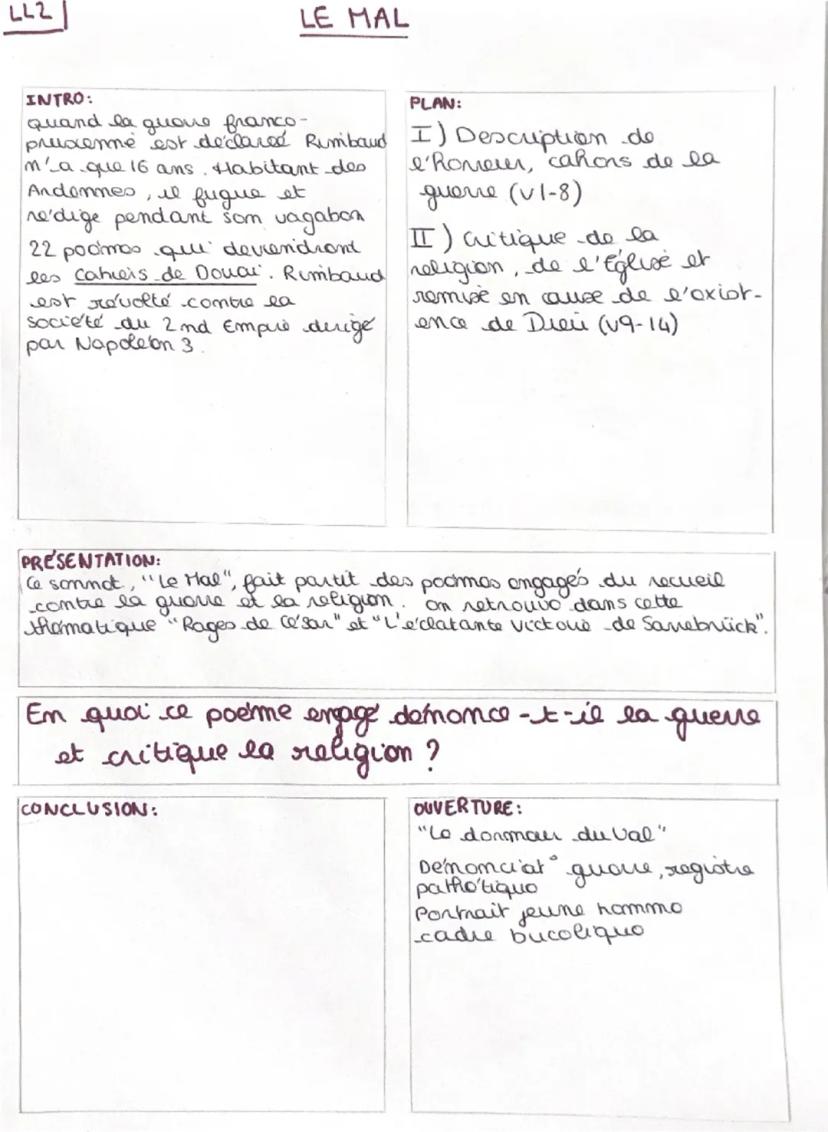 LL2
LE MAL
INTRO:
Quand la guerre franco-
prussienne est déclarée Rimbaud
n'a que 16 ans. Habitant des
Ardennes, il fugue et
rédige pendant son vagabon
22 poèmes qui deviendront
les Cahiers de Douai. Rimbaud
est révolté contre la
société du 2nd Empire dirigé
par Napoléon 3.
PLAN:
I) Description de
l'Horreur, cahors de la
guerre (v1-8)
II) Critique de la
religion, de l'Église et
remise en cause de l'exist-
ence de Dieu (v9-14)
PRÉSENTATION:
Ce sonnet, "Le Mal", fait partit des poèmes engagés du recueil
contre la guerre et la religion. On retrouve dans cette
thématique "Rages de César" et "L'éclatante victoire de Sarrebrück".
En quoi ce poème engagé dénonce-t-il la guerre
et critique la religion ?
CONCLUSION:
OUVERTURE:
"Le dormeur du Val"
Dénonciat° guerre, registre
pathétique
Portrait jeune homme
cadre bucolique